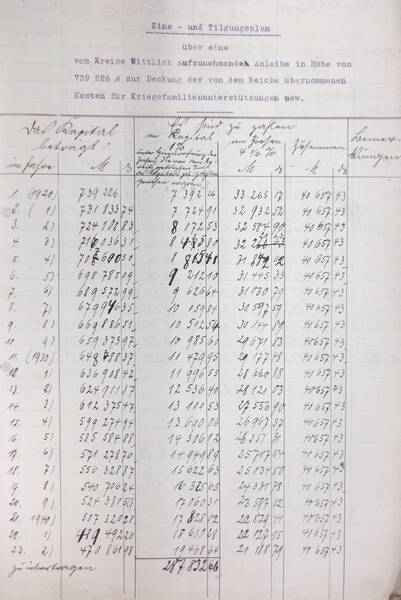 Zins - und Tilgungsplan
über eine
vom Kreise Wittlich aufzunehmende Anleihe in Höhe von
739 226 M zur Deckung der von dem Reiche übernommenen
Kosten für Kriegsfamilienunterstützungen usw.
Das Kapital beträgt Es sind zu zahlen Bemerkungen
im Jahre an Kapital 1% an Zinsen 4 ½ % Zusammen
M M M M
1. (1920) 739 226 7 392 26 33 265 17 40 657 43
2. ( 1) 731 833 74 7 724 91 32 932 52 40 657 43
3. 2) 724 108 83 8 072 53 32 584 90 40 657 43
4. 3) 716 036 31 8 435 80 32 221 63 40 657 43
5. 4) 707 600 50 8 815 40 31 842 02 40 657 43
6. 5) 698 785 09 9 212 10 31 445 33 40 657 43
7. 6) 689 572 99 9 626 64 31 030 79 40 657 43
8. 7) 679 946 35 10 059 84 30 597 59 40 657 43
9. 8) 669 886 51 10 512 54 30 144 89 40 657 43
10. 9) 659 373 97 10 985 60 29 671 83 40 657 43
11. (1930) 648 388 37 11 479 95 29 177 48 40 657 43
12. 1) 636 908 42 11 996 55 28 660 88 40 657 43
13. 2) 624 911 87 12 536 40 28 121 03 40 657 43
14. 3) 612 375 47 13 100 53 27 556 90 40 657 43
15. 4) 599 274 94 13 690 06 26 967 37 40 657 43
16. 5) 585 584 88 14 306 12 26 351 31 40 657 43
17. 6) 571 278 76 14 949 89 25 707 54 40 657 43
18. 7) 556 328 87 15 622 63 25 034 80 40 657 43
19. 8) 540 706 24 16 325 65 24 331 78 40 657 43
20. 9) 524 380 59 17 060 31 23 597 12 40 657 43
21. 1940) 507 320 28 17 828 02 22 829 41 40 657 43
22. 1) 489 492 20 18 630 28 22 027 15 40 657 43
23. 2) 470 861 98 19 468 64 21 188 79 40 657 43
zu übertragen 287 832 66